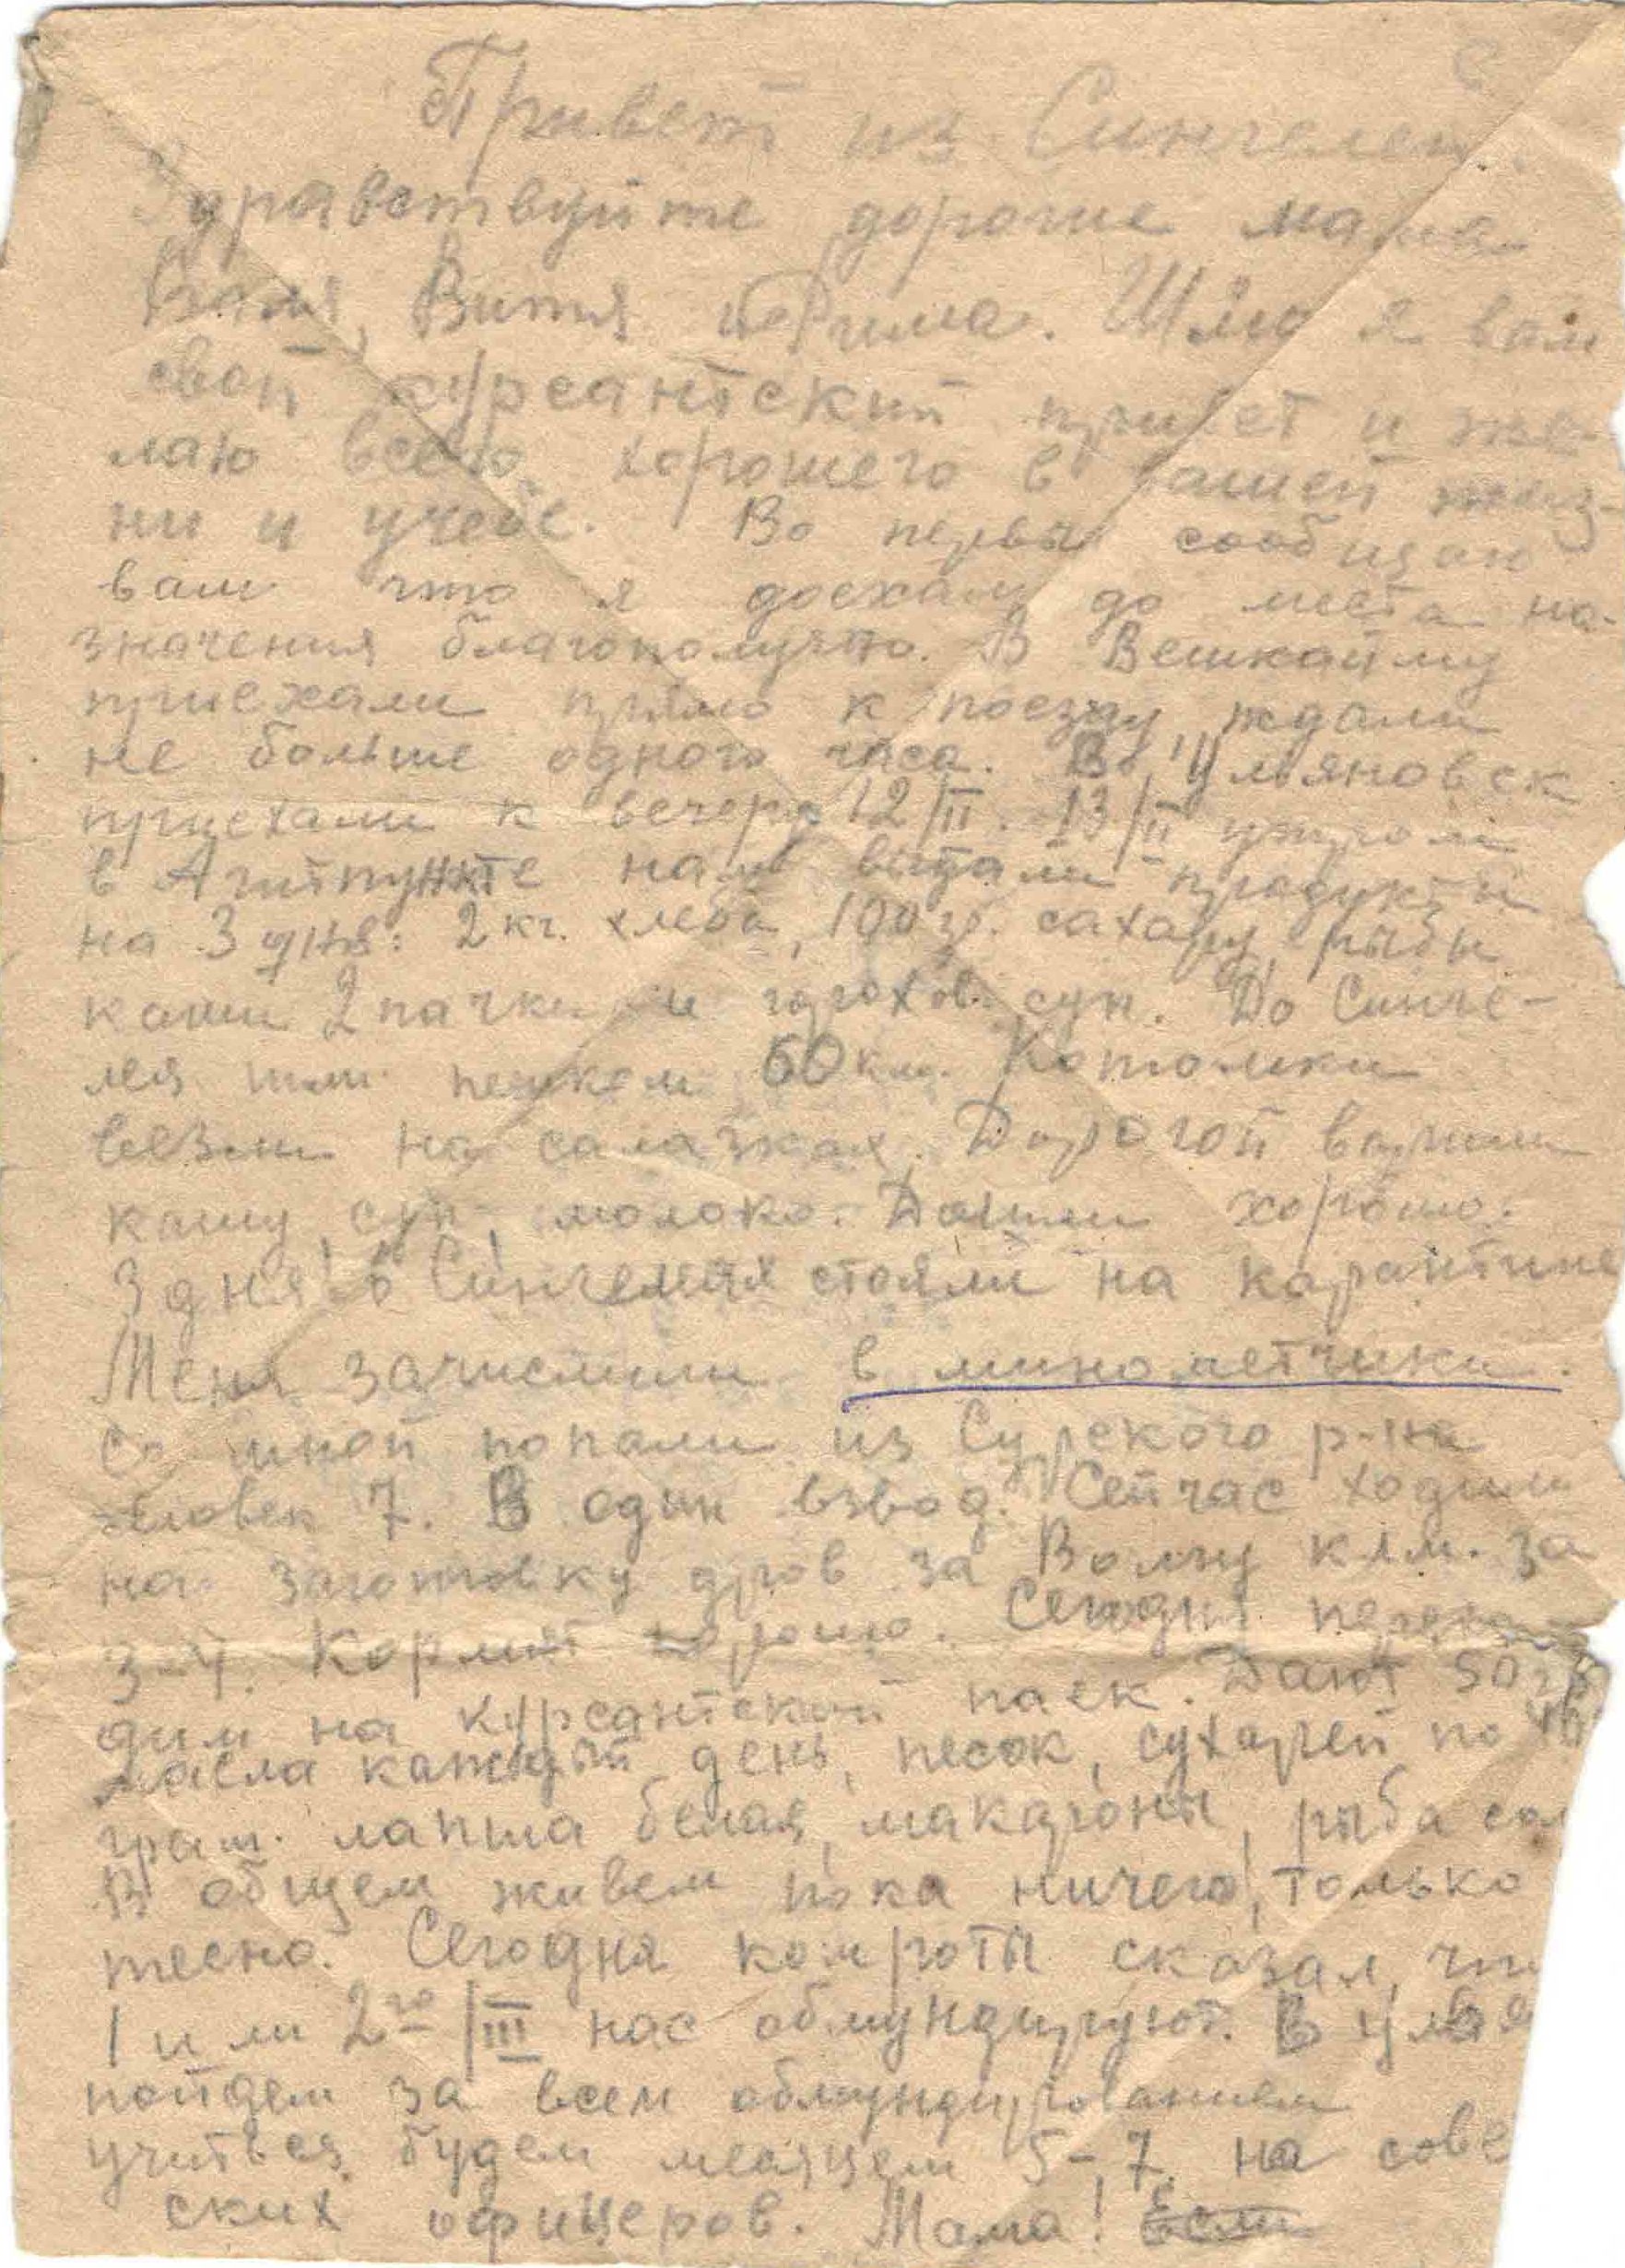 Привет из Сингелея.
Здравствуйте дорогие мама
Валя, Витя и Рима. Шлю я вам
свой курсантский привет и же-
лаю всего хорошего в вашей жиз-
ни и учебе. Во первых сообщаю
вам что я доехал до места на-
значения благополучно. В Вешкайму
приехали прямо к поезду, ждали
не больше одного часа. Во Ульяновск
приехали к вечеру 12/II. 13/II утром
в Агитпункте нам выдали продукты
на 3 дня: 2 кг. хлеба, 100 гр. сахару, рыбы
каши 2 пачки и горохов. суп. До Синге-
лея шли пешком 60 км. Котомки
везли на салазках. Дорогой варили
кашу, суп, молоко. Дошли хорошо.
3 дня в Сингелее стояли на карантине
Меня зачислили в минометчики.
Со мной попали из Сурского р-на
человек 7. В один взвод. Сейчас ходили
на заготовку дров за Волгу клм. за
3-4. Кормят хорошо. Сегодня перехо-
дим на курсантский паек. Дают 50 гр
масла каждый день, песок, сухарей по
грам. лапша белая, макароны, рыба сол
В общем живем пока ничего, только
тесно. Сегодня ком роты сказал, что
1 или 2го/III нас обмундируют. В Улья
пойдем за всем обмундированием
учиться будем месяцем 5-7. на сове
ских офицеров. Мама! Если